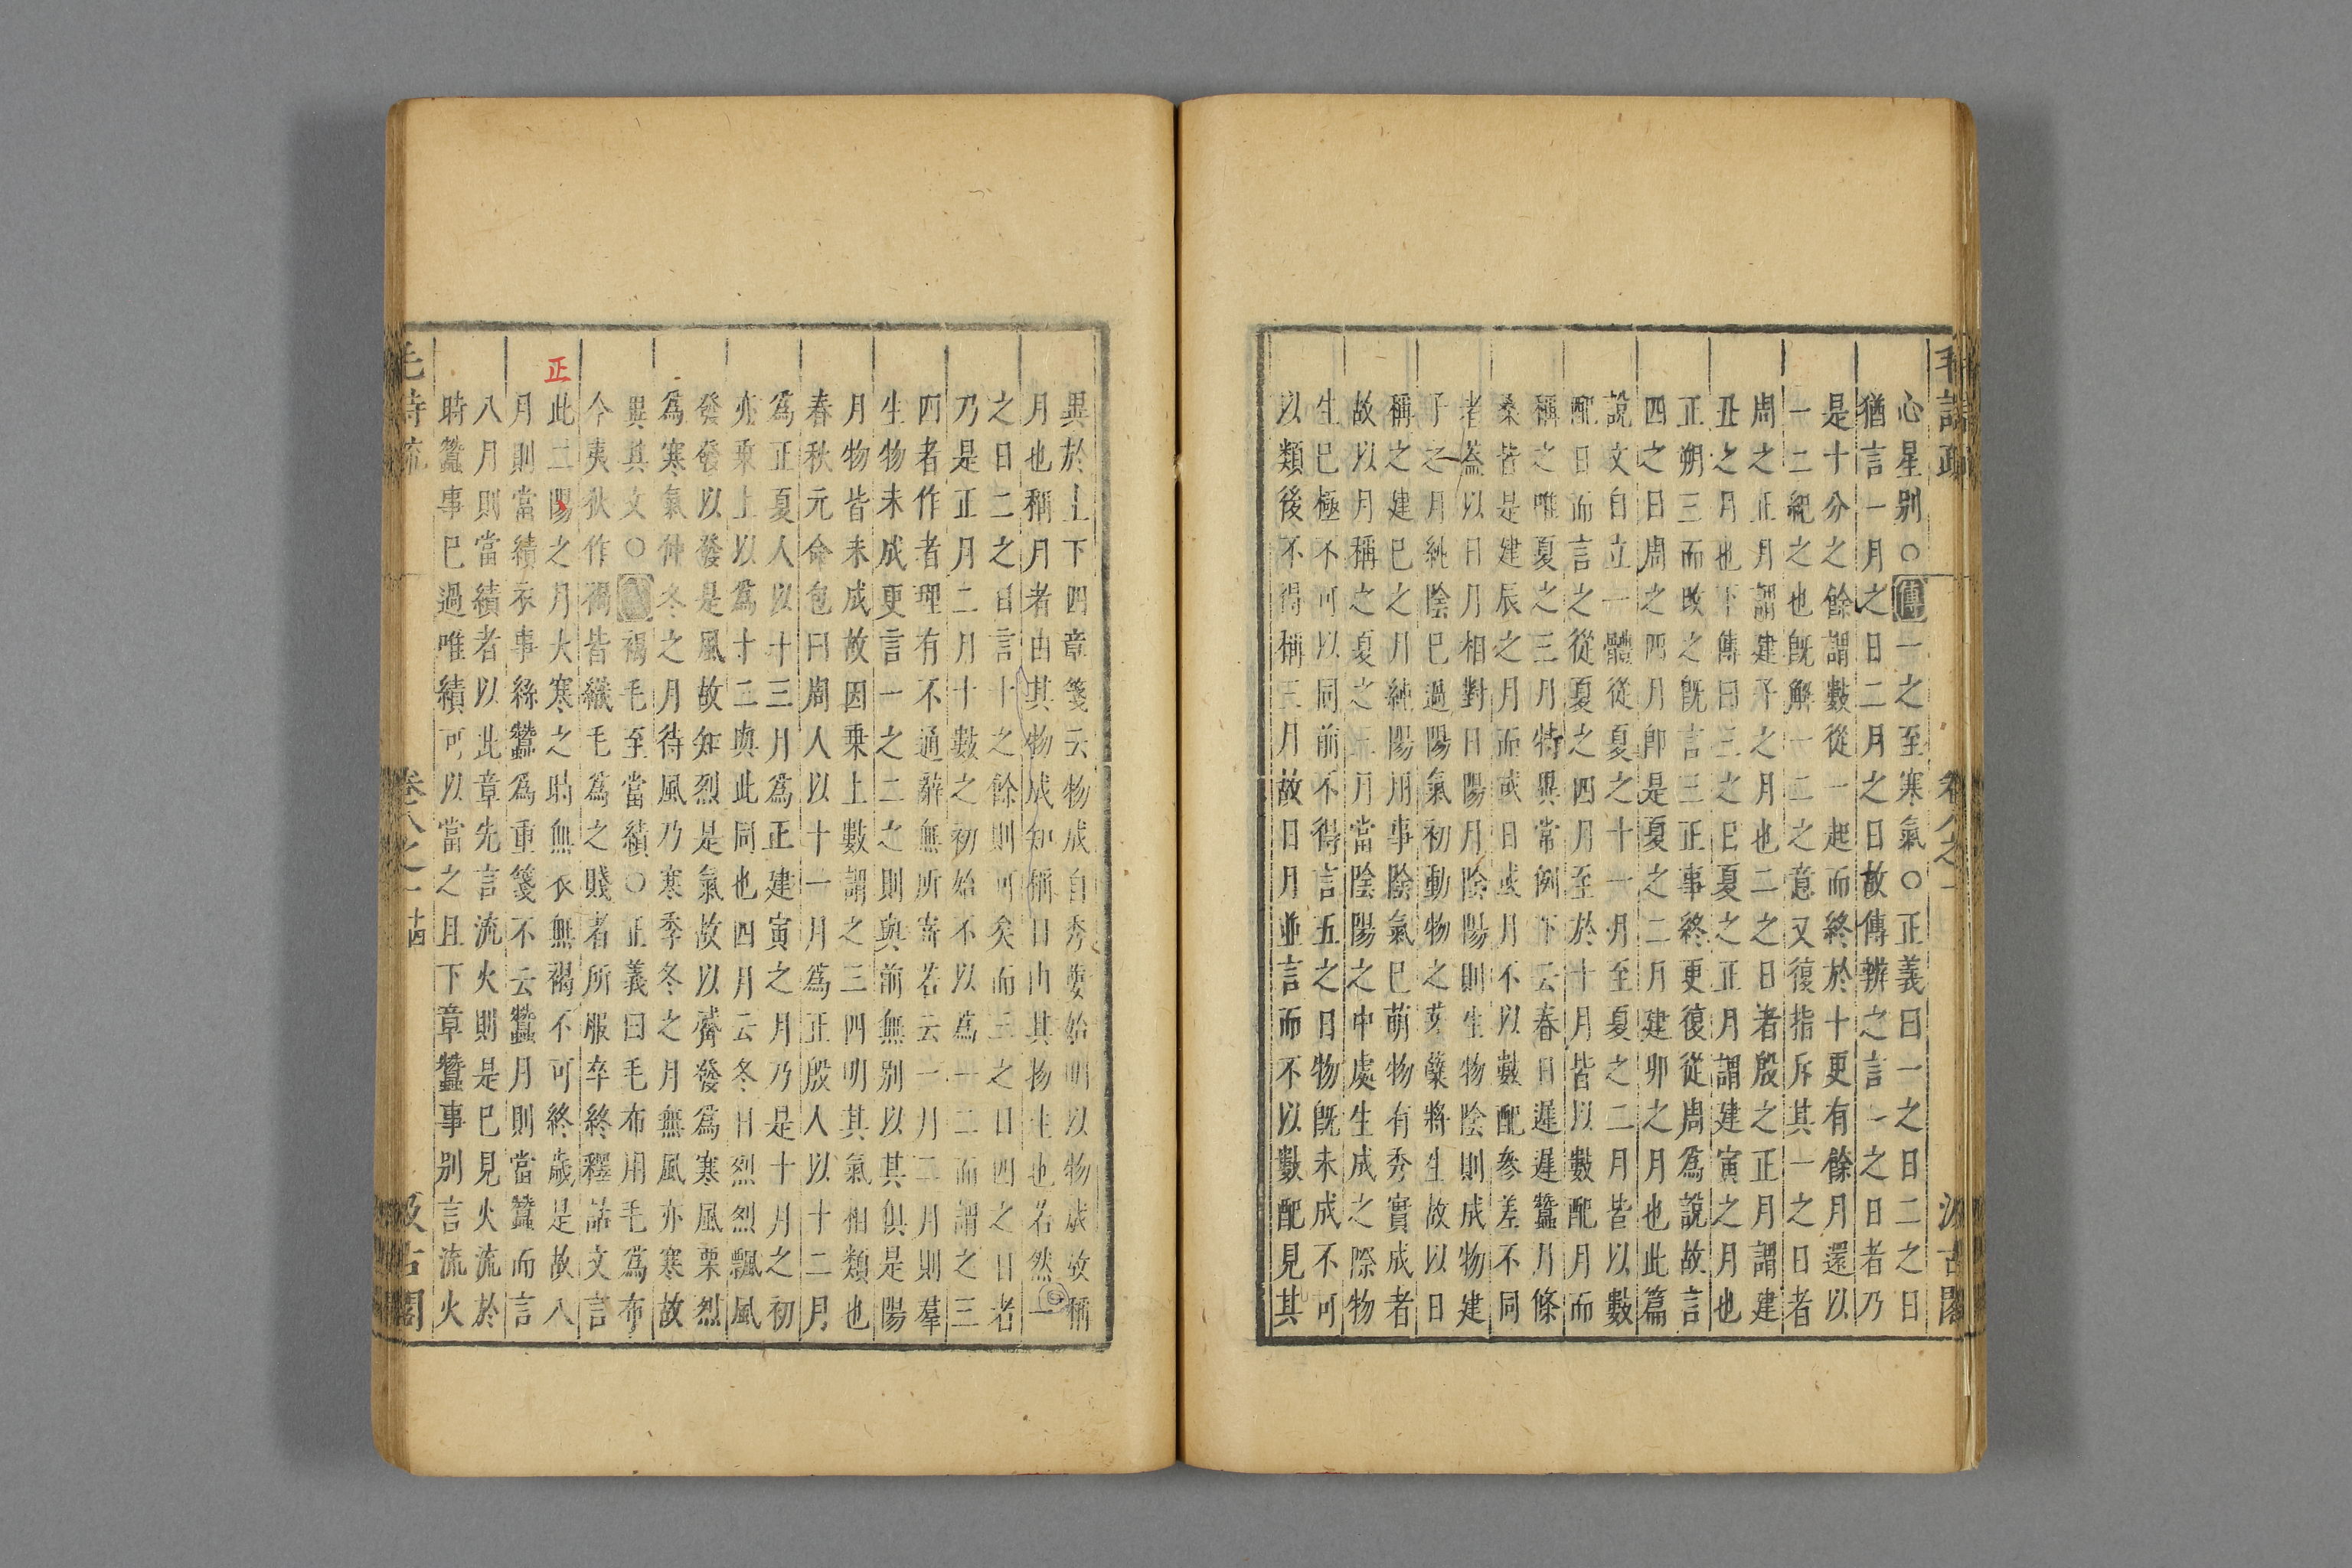 毛詩疏 卷八之一 汲古閣
心星别○傳一之至寒氣○正義曰一之日二之日
猶言一月之日二月之日故傳辨之言一之日者乃
是十分之餘謂數從一起而終於十更有餘月還以
一二紀之也既解一二之意又復指斥其一之日者
周之正月謂建子之月也二之日者殷之正月謂建
丑之月也下傳曰三之日夏之正月謂建寅之月也
正朔三而改之既言三正事終更復從周爲說故言
四之日周之四月即是夏之二月建卯之月也此篇
說文自立一體從夏之十一月至夏之二月皆以數
配日而言之從夏之四月至於十月皆以數配月而
稱之唯夏之三月特異常例下云春日遲遲蠶月條
桑皆是建辰之月而或日或月不以數配參差不同
者葢以日月相對日陽月陰陽則生物陰則成物建
子之月純陰已過陽氣初動物之芽蘖將生故以日
稱之建巳之月純陽用事陰氣已萌物有秀實成者
故以月稱之夏之三月當陰陽之中處生成之際物
生已極不可以同前不得言五之日物既未成不可
以類後不得稱三月故日月並言而不以數配見其
異於上下四章箋云物成自秀葽始明以物成故稱
月也稱月者由其物成知稱日由其物生也若然一
之日二之日言十之餘則可矣而三之日四之日者
乃是正月二月十數之初始不以爲一二而謂之三
四者作者理有不通辭無所寄若云一月二月則羣
生物未成更言一之二之則與前無别以其俱是陽
月物皆未成故因乗上數謂之三四明其氣相類也
春秋元命包曰周人以十一月爲正殷人以十二月
爲正夏人以十三月爲正建寅之月乃是十月之初
亦乗上以爲十二與此同也四月云冬日烈烈飄風
發發以發是風故知烈是氣故以觱發爲寒風栗烈
爲寒氣仲冬之月待風乃寒季冬之月無風亦寒故
異其文○箋褐毛至當績○正義曰毛布用毛爲布
今夷狄作褐皆織毛爲之賤者所服卒終釋詁文言
正
此二陽之月大寒之時無衣無褐不可終歲是故八
月則當績衣事絲蠶爲重箋不云蠶月則當蠶而言
八月則當績者以此章先言流火則是已見火流於
時蠶事已過唯績可以當之且下章蠶事别言流火
毛詩疏 卷八之一 十四 汲古閣